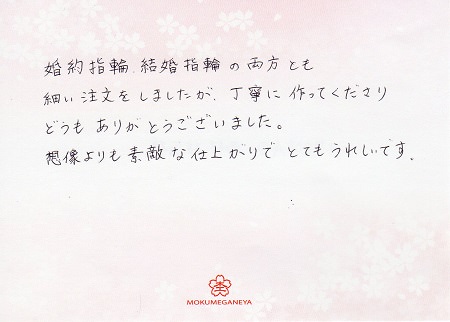 婚約指輪、結婚指輪の両方とも
細い注文をしましたが、丁寧に作ってくださり
どうもありがとうございました。
想像よりも素敵な仕上がりでとてもうれしいです。
MOKUMEGANEYA